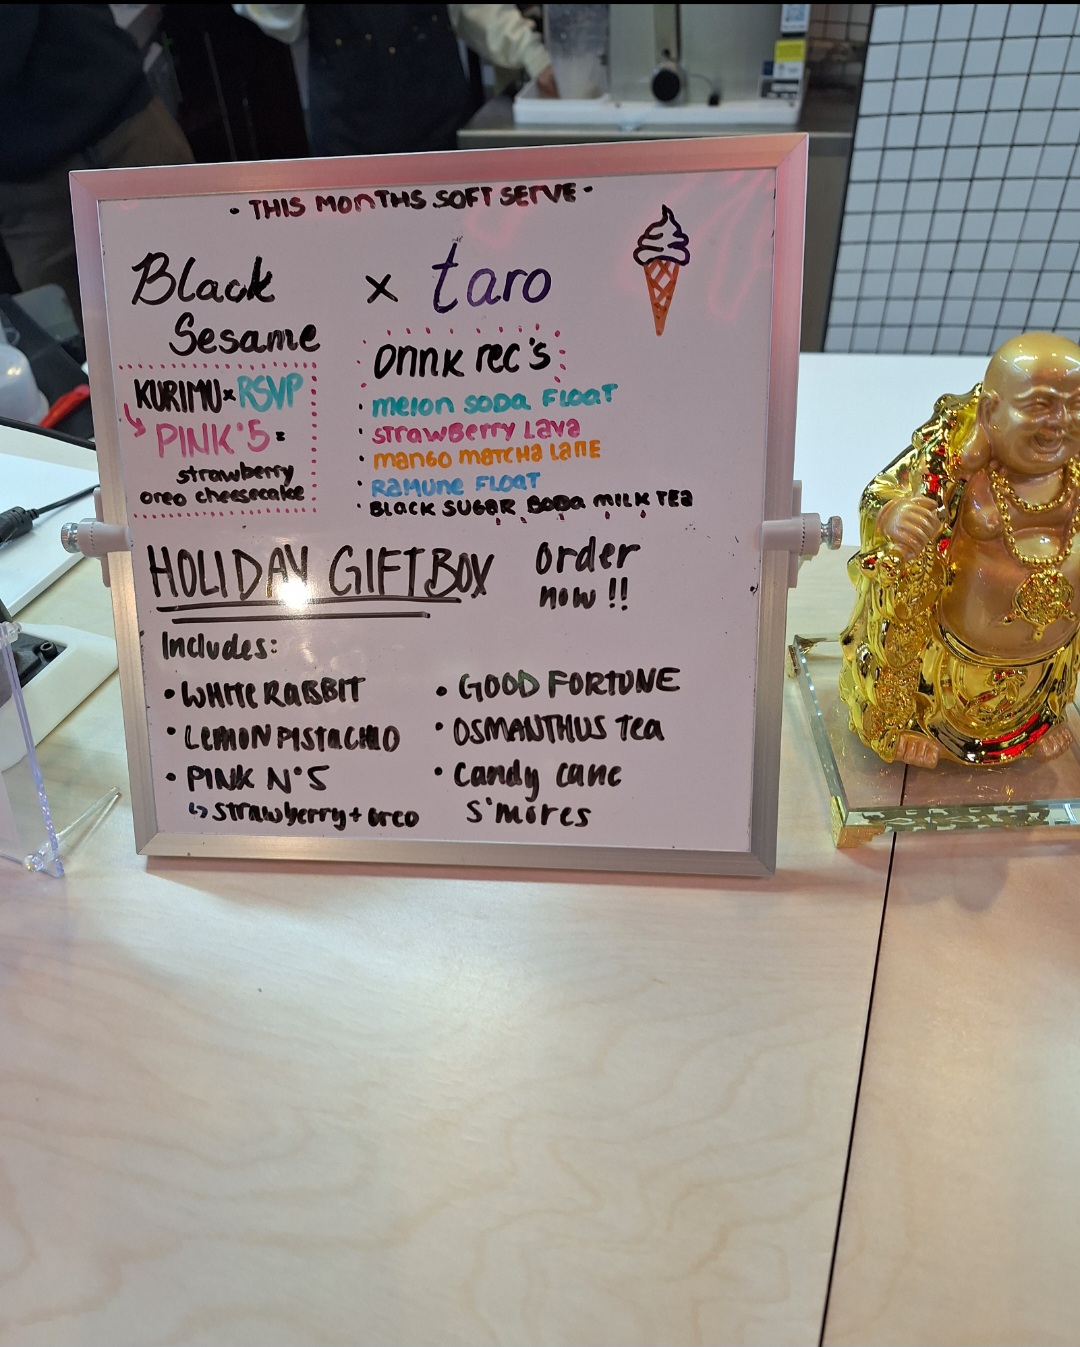 - THIS MONTHS SOFT SERVE -
Black Sesame x taro
KURIMU x RSVP
PINK°5:
strawberry
oreo cheesecake
Drink rec's
· melon SODA FLOAT
· strawberry Lava
· mango matcha Latte
· Ramune FLOAT
· BLACK SUGAR BOBa MILK TEa
HOLIDAY GIFT BOX
order
now !!
Includes:
• WHITE RaBBIT
• LEMON PISTACHIO
• PINK N°5
↳ strawberry + oreo
• GOOD FORTUNE
• OSMANTHUS Tea
• Candy cane
s'mores